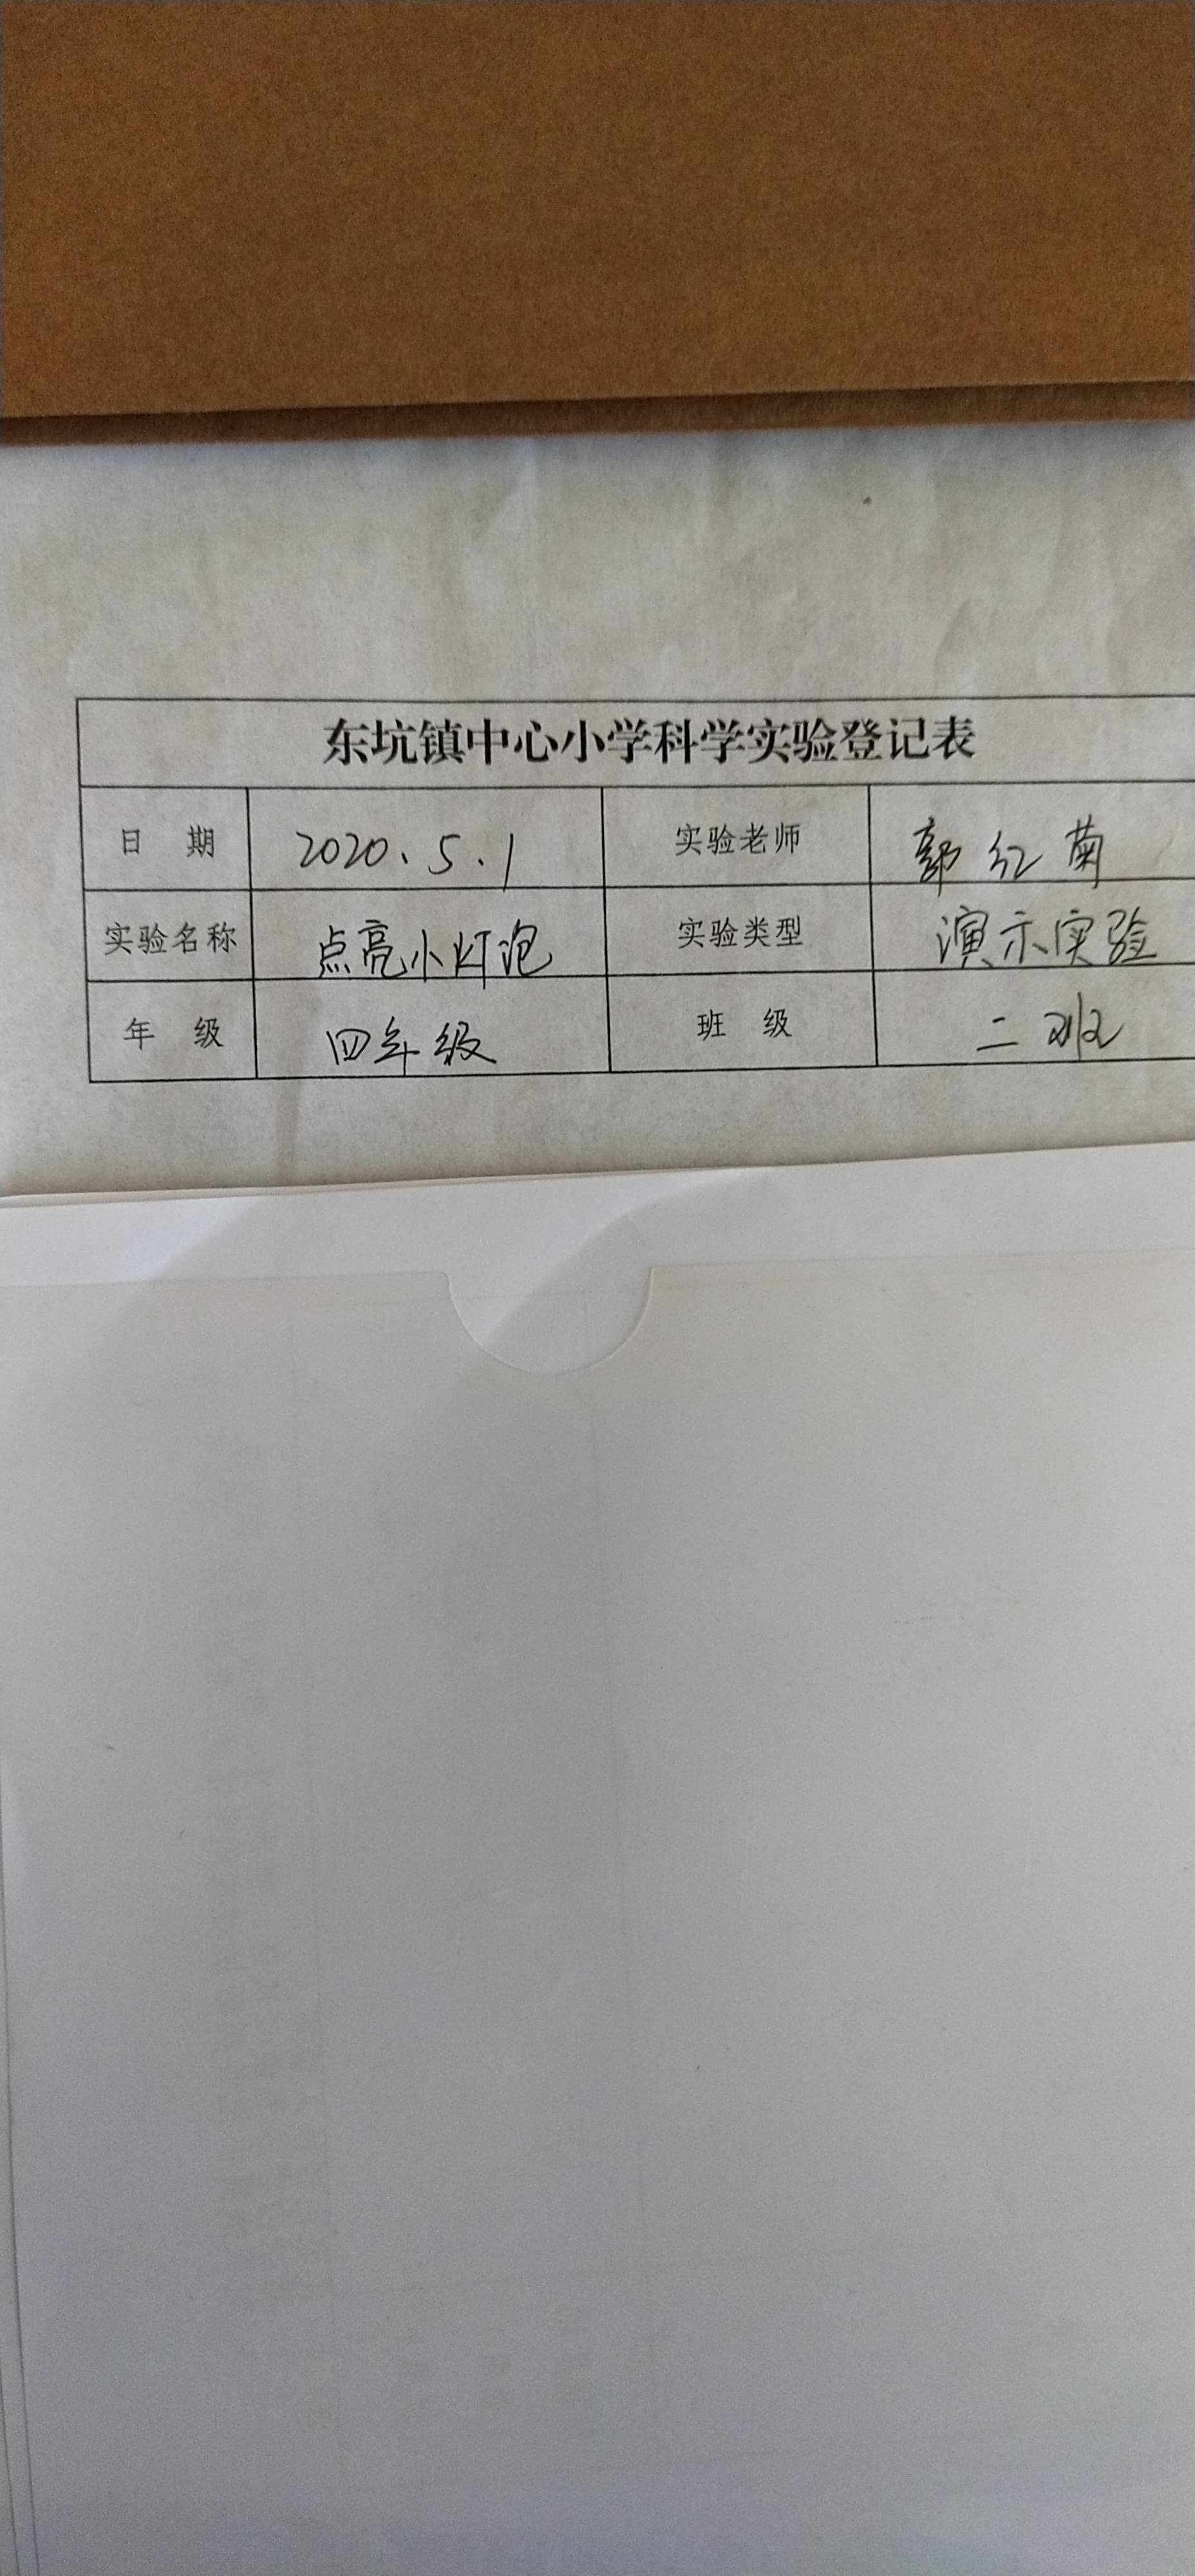 东坑镇中心小学科学实验登记表
日 期 2020.5.1 实验老师 郭红菊
实验名称 点亮小灯泡 实验类型 演示实验
年 级 四年级 班 级 二班